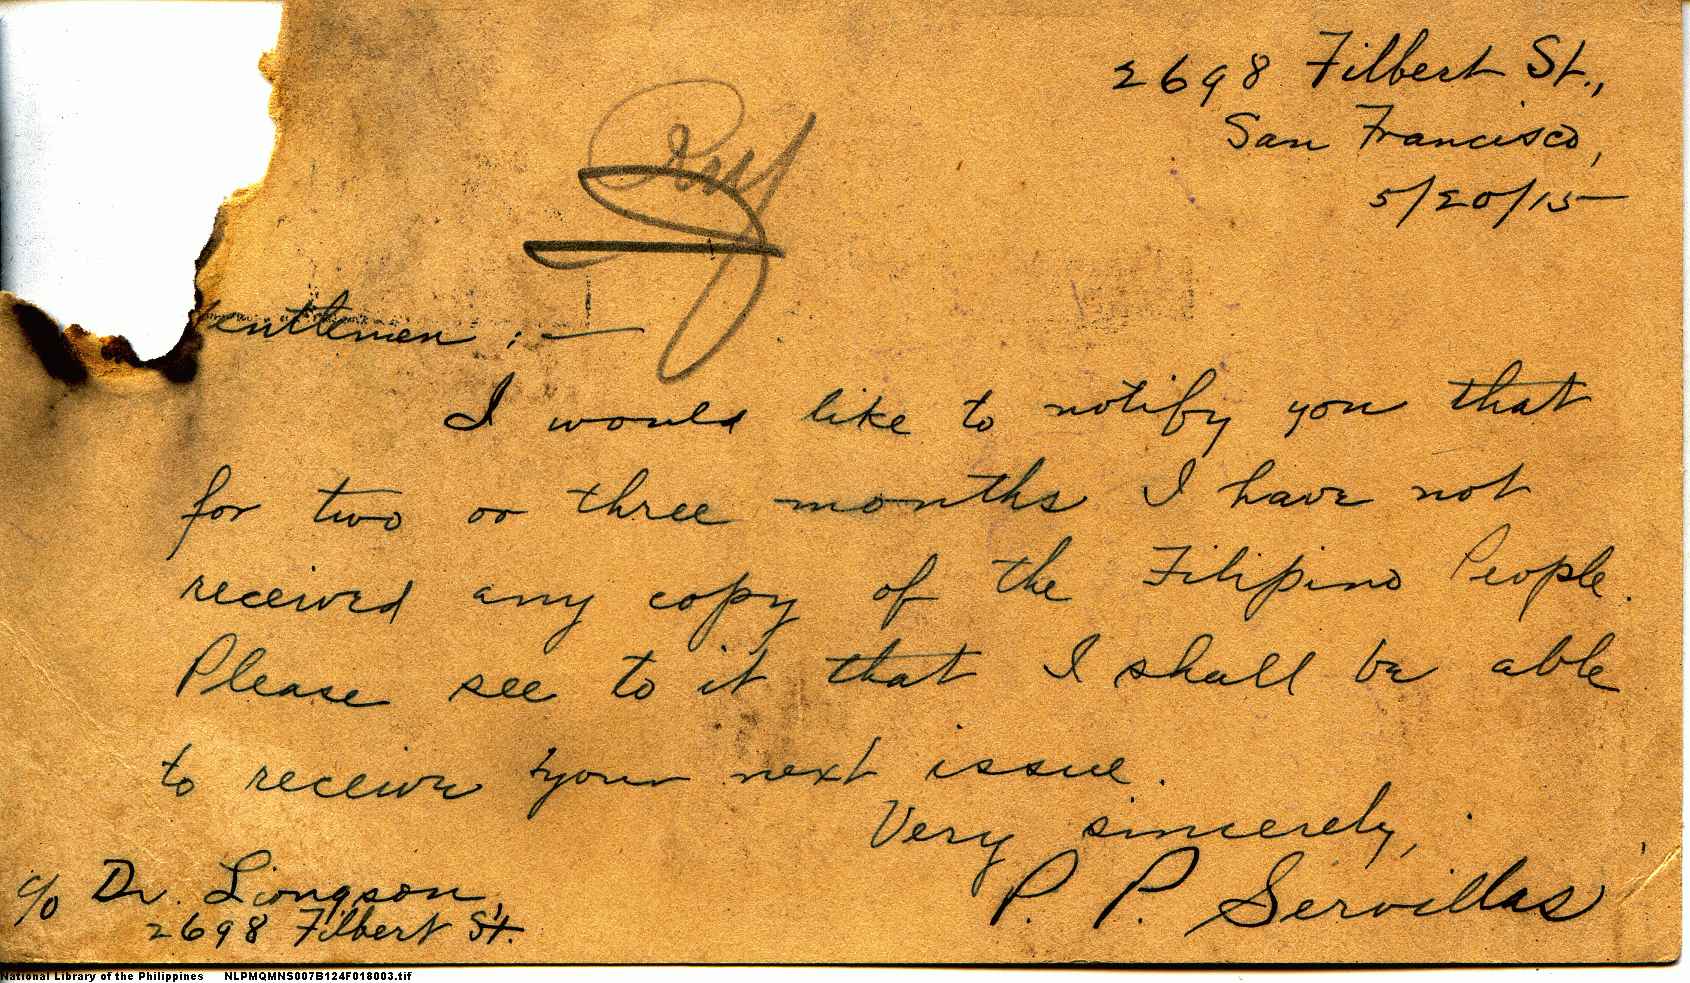 2698 Filbert St.,
San Francisco,
5/20/15
entlemen :—
I would like to notify you that
for two or three months I have not
received any copy of the Filipino People.
Please see to it that I shall be able
to receive your next issue.
Very sincerely,
P. P. Servillas
c/o Dr. Liongson,
2698 Filbert St.
National Library of the Philippines NLPMQMNS007B124F018003.tif